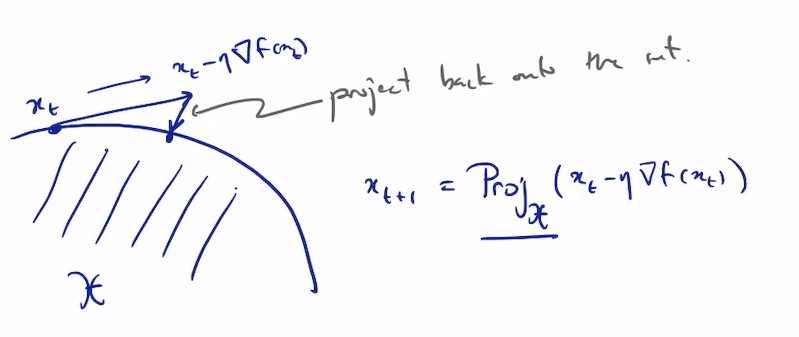 x_t - η∇f(x_t)
x_t
project back onto the set.
x_{t+1} = Proj_𝒳 (x_t - η∇f(x_t))
𝒳